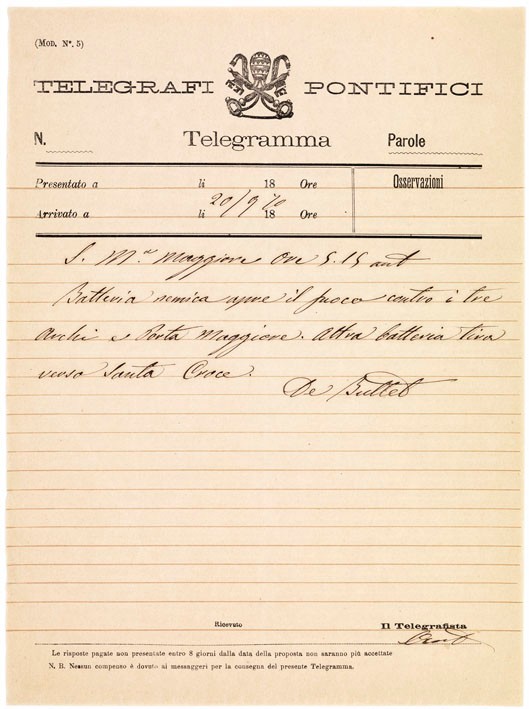 (Mod. N°. 5)
TELEGRAFI PONTIFICI
N. Telegramma Parole
Presentato a li 18 Ore Osservazioni
20/9 70
Arrivato a li 18 Ore
S. Mª Maggiore Ore 5.15 ant
Batteria nemica apre il fuoco contro i tre
Archi e Porta Maggiore. Altra batteria tira
verso Santa Croce.
De Buttet
Ricevuto
Il Telegrafista
Le risposte pagate non presentate entro 8 giorni dalla data della proposta non saranno più accettate
N. B. Nessun compenso è dovuto ai messaggeri per la consegna del presente Telegramma.